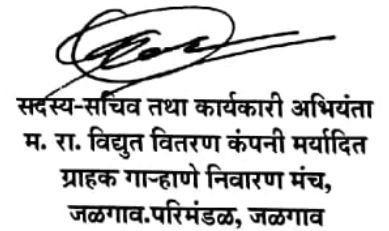 सदस्य-सचिव तथा कार्यकारी अभियंता
म. रा. विद्युत वितरण कंपनी मर्यादित
ग्राहक गाऱ्हाणे निवारण मंच,
जळगाव.परिमंडळ, जळगाव